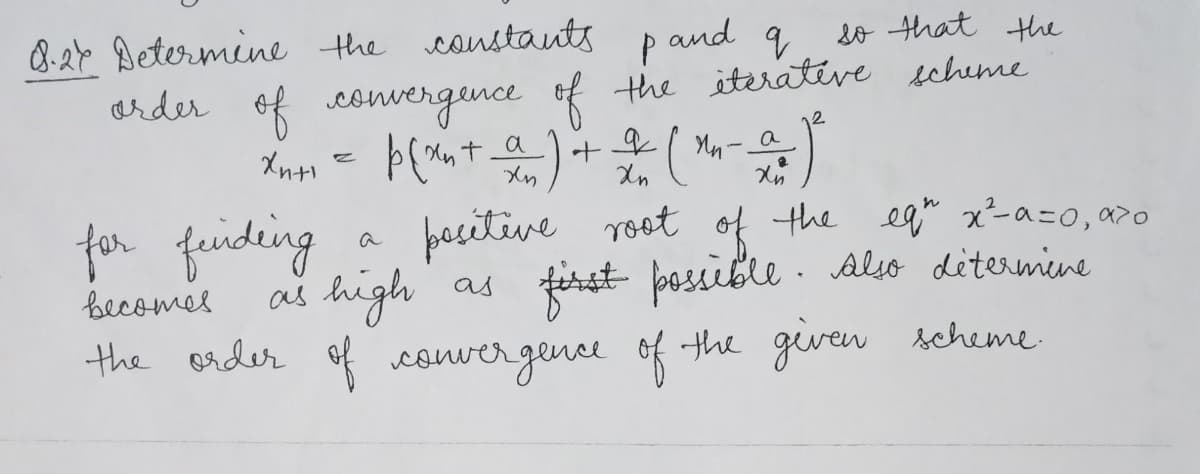 Q.27 Determine the constants p and q so that the
order of convergence of the iterative scheme
xₙ₊₁ = p(xₙ + a/xₙ) + q/xₙ (xₙ - a/xₙ)²
for finding a positive root of the eqⁿ x²-a=0, a>0
becomes as high as first possible. Also determine
the order of convergence of the given scheme.